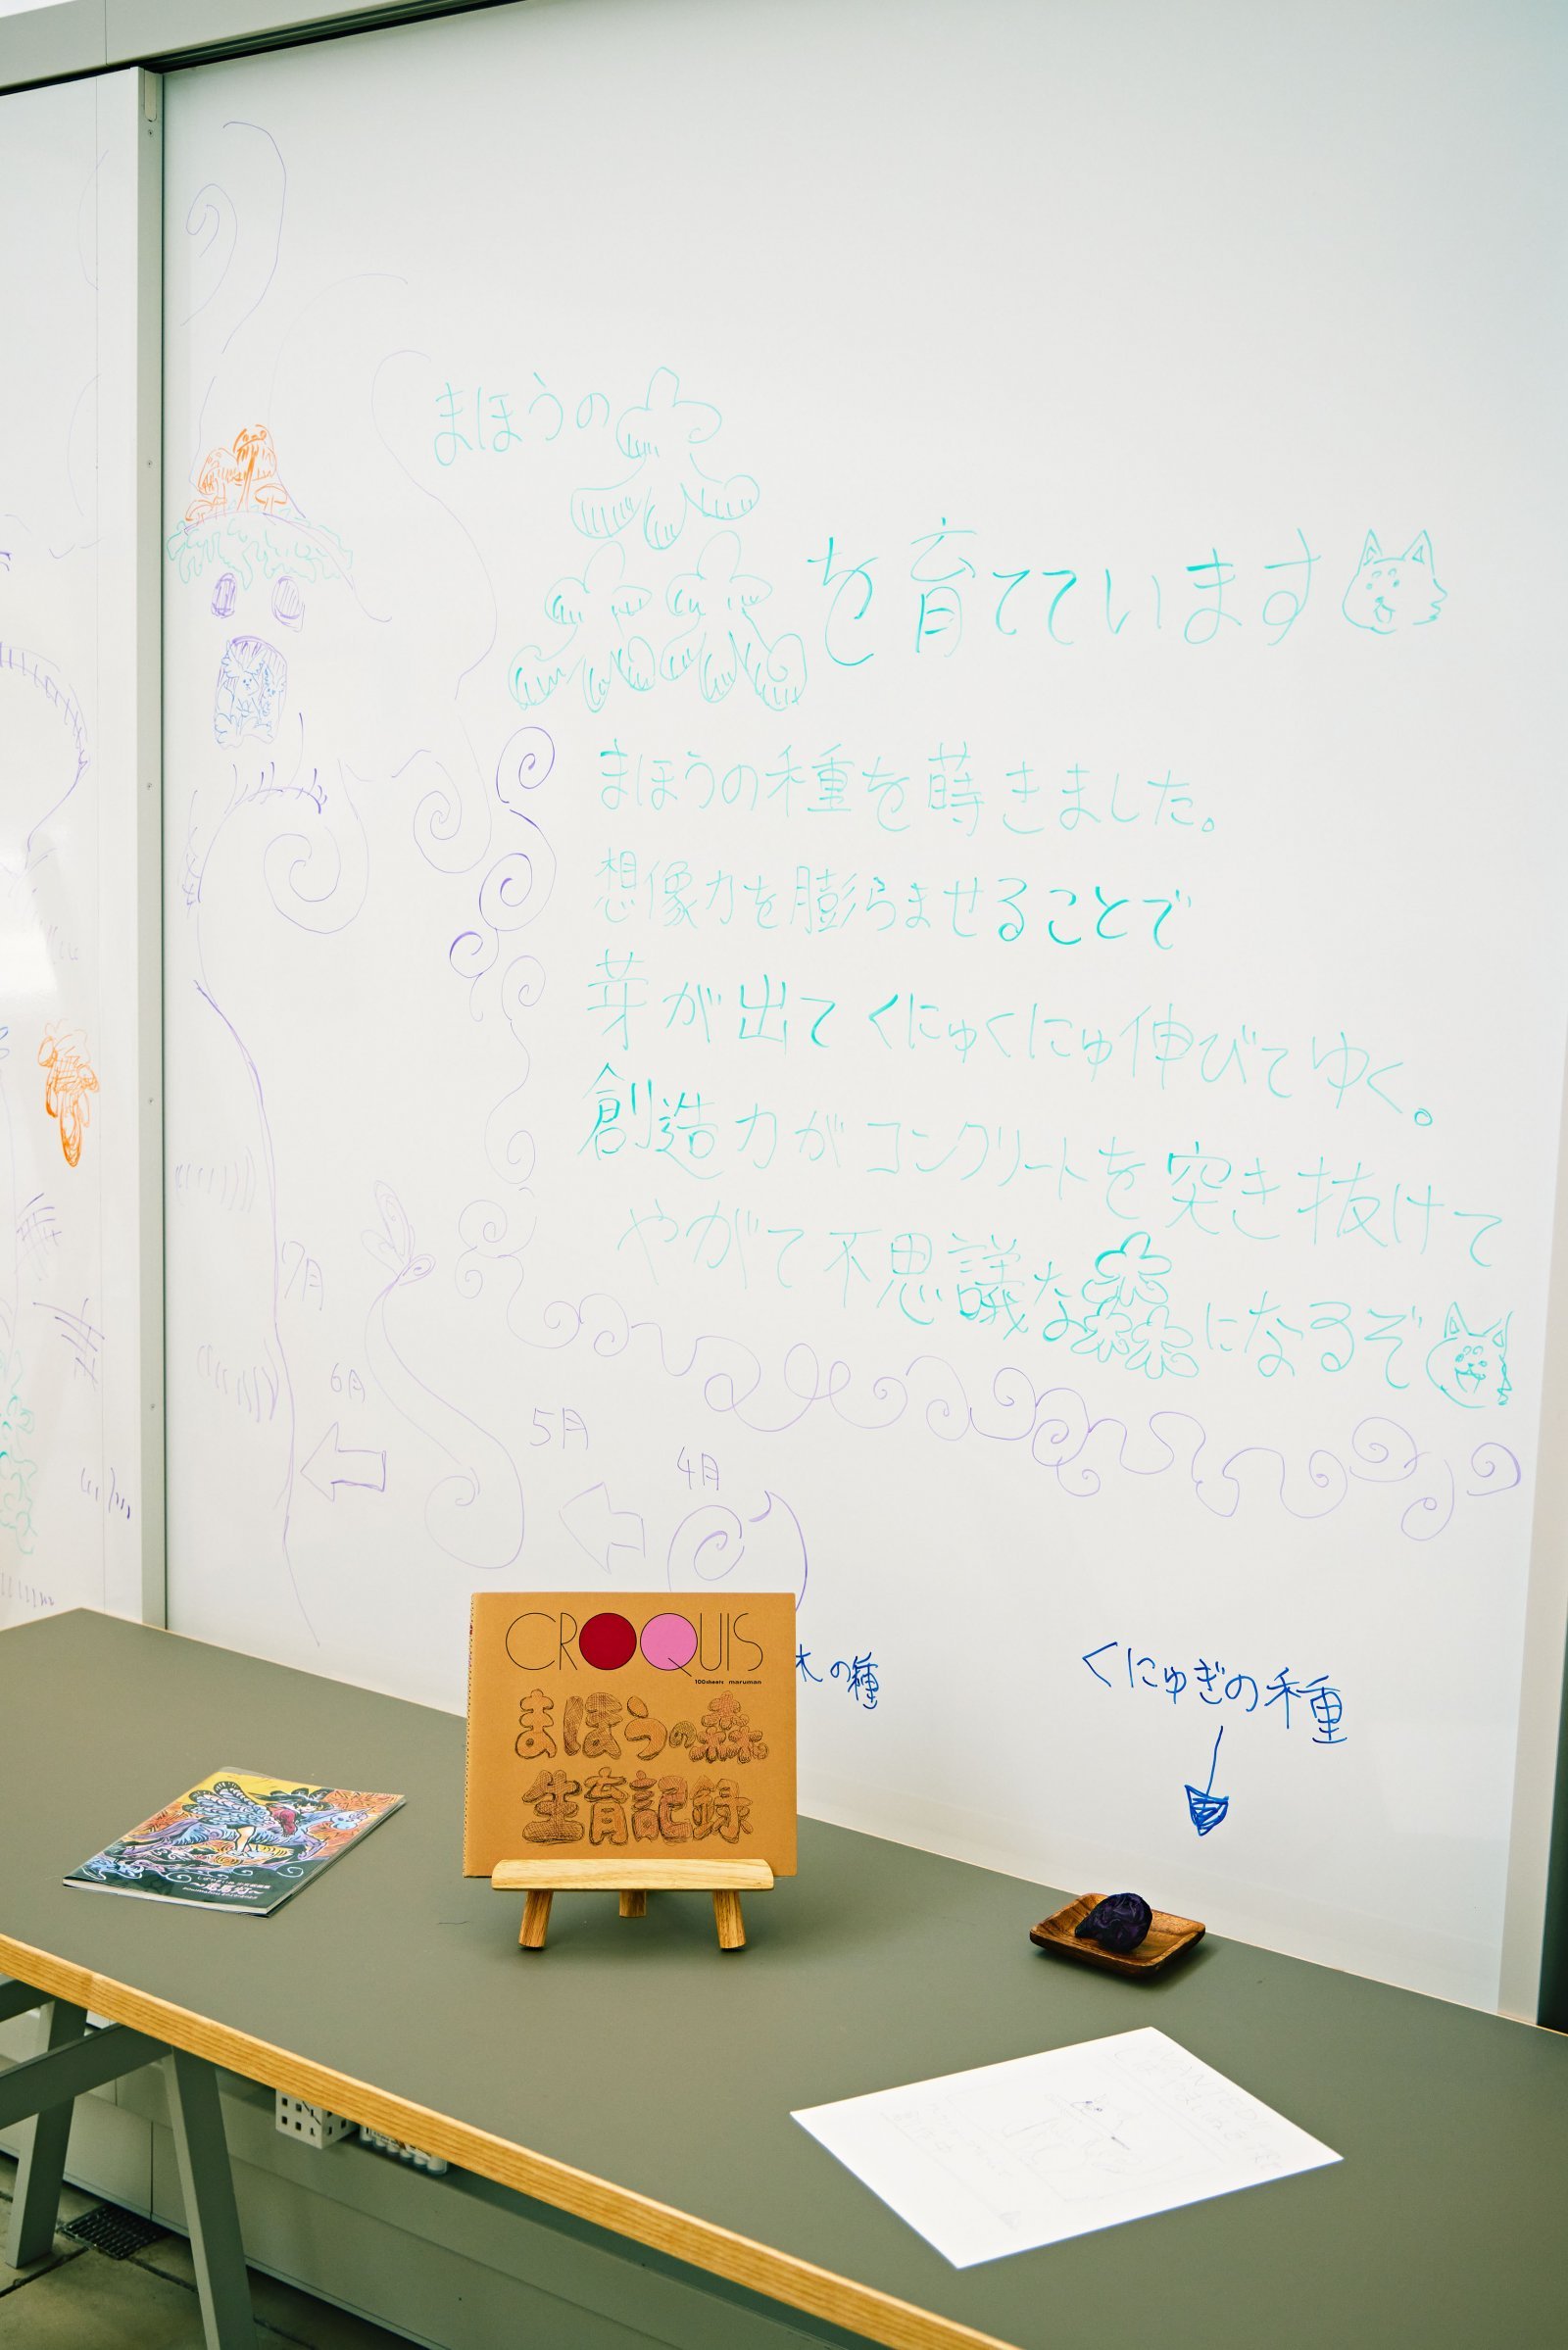 まほうの森を育てています
まほうの種を蒔きました。
想像力を膨らませることで
芽が出てくにゅくにゅ伸びてゆく。
創造力がコンクリートを突き抜けて
やがて不思議な森になるぞ
7月
6月
5月
4月
木の種
くにゅぎの種
CROQUIS
100sheets maruman
まほうの森。
生育記録